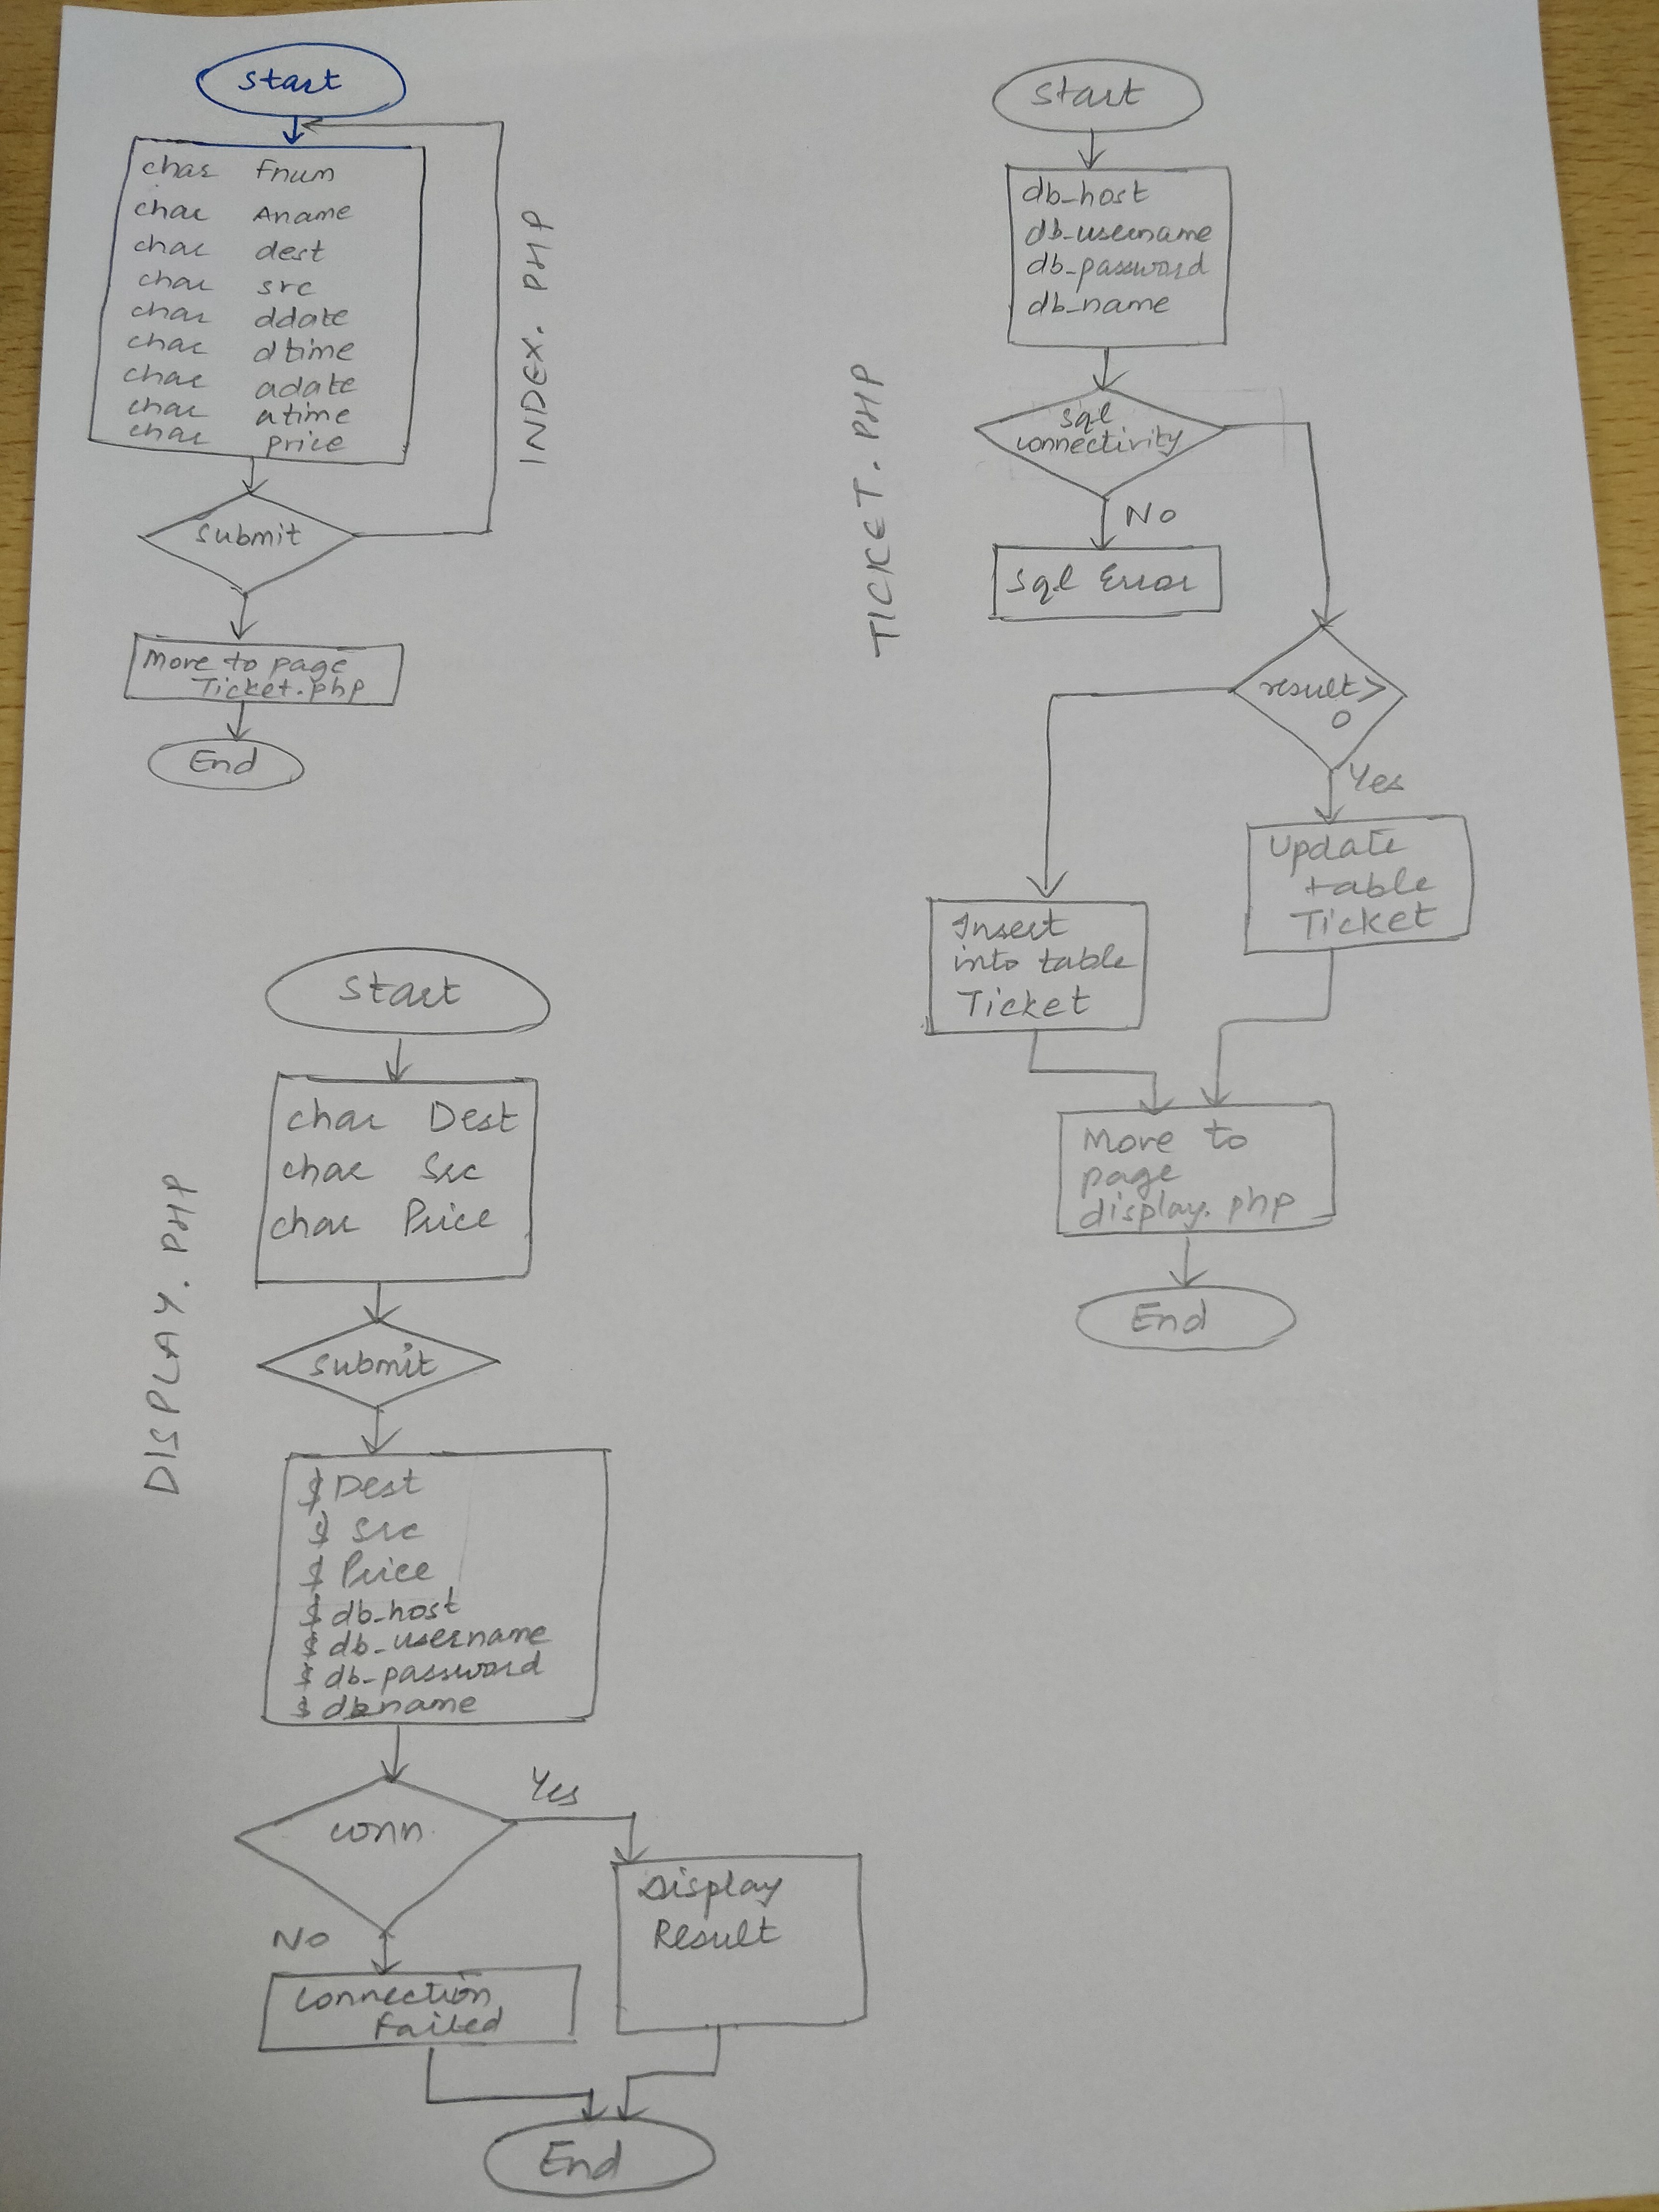 Start
char Fnum
char Aname
char dest
char src
char ddate
char dtime
char adate
char atime
char price
submit
Move to page
Ticket.php
End
INDEX. PHP
Start
db_host
db_username
db_password
db_name
sql
connectivity
No
Sql Error
result >
0
Yes
Update
table
Ticket
Insert
into table
Ticket
Move to
page
display.php
End
TICKET. PHP
Start
char Dest
char Src
char Price
submit
$ Dest
$ Src
$ Price
$ db_host
$ db_username
$ db_password
$ dbname
conn
Yes
Display
Result
No
Connection
Failed
End
DISPLAY. PHP